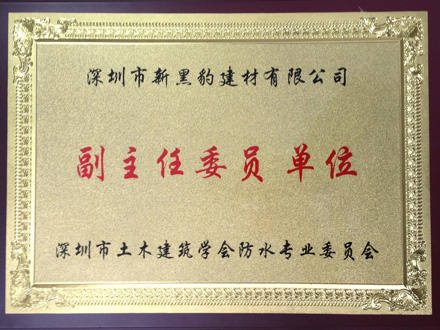 深圳市新黑豹建材有限公司
副主任委员单位
深圳市土木建筑学会防水专业委员会